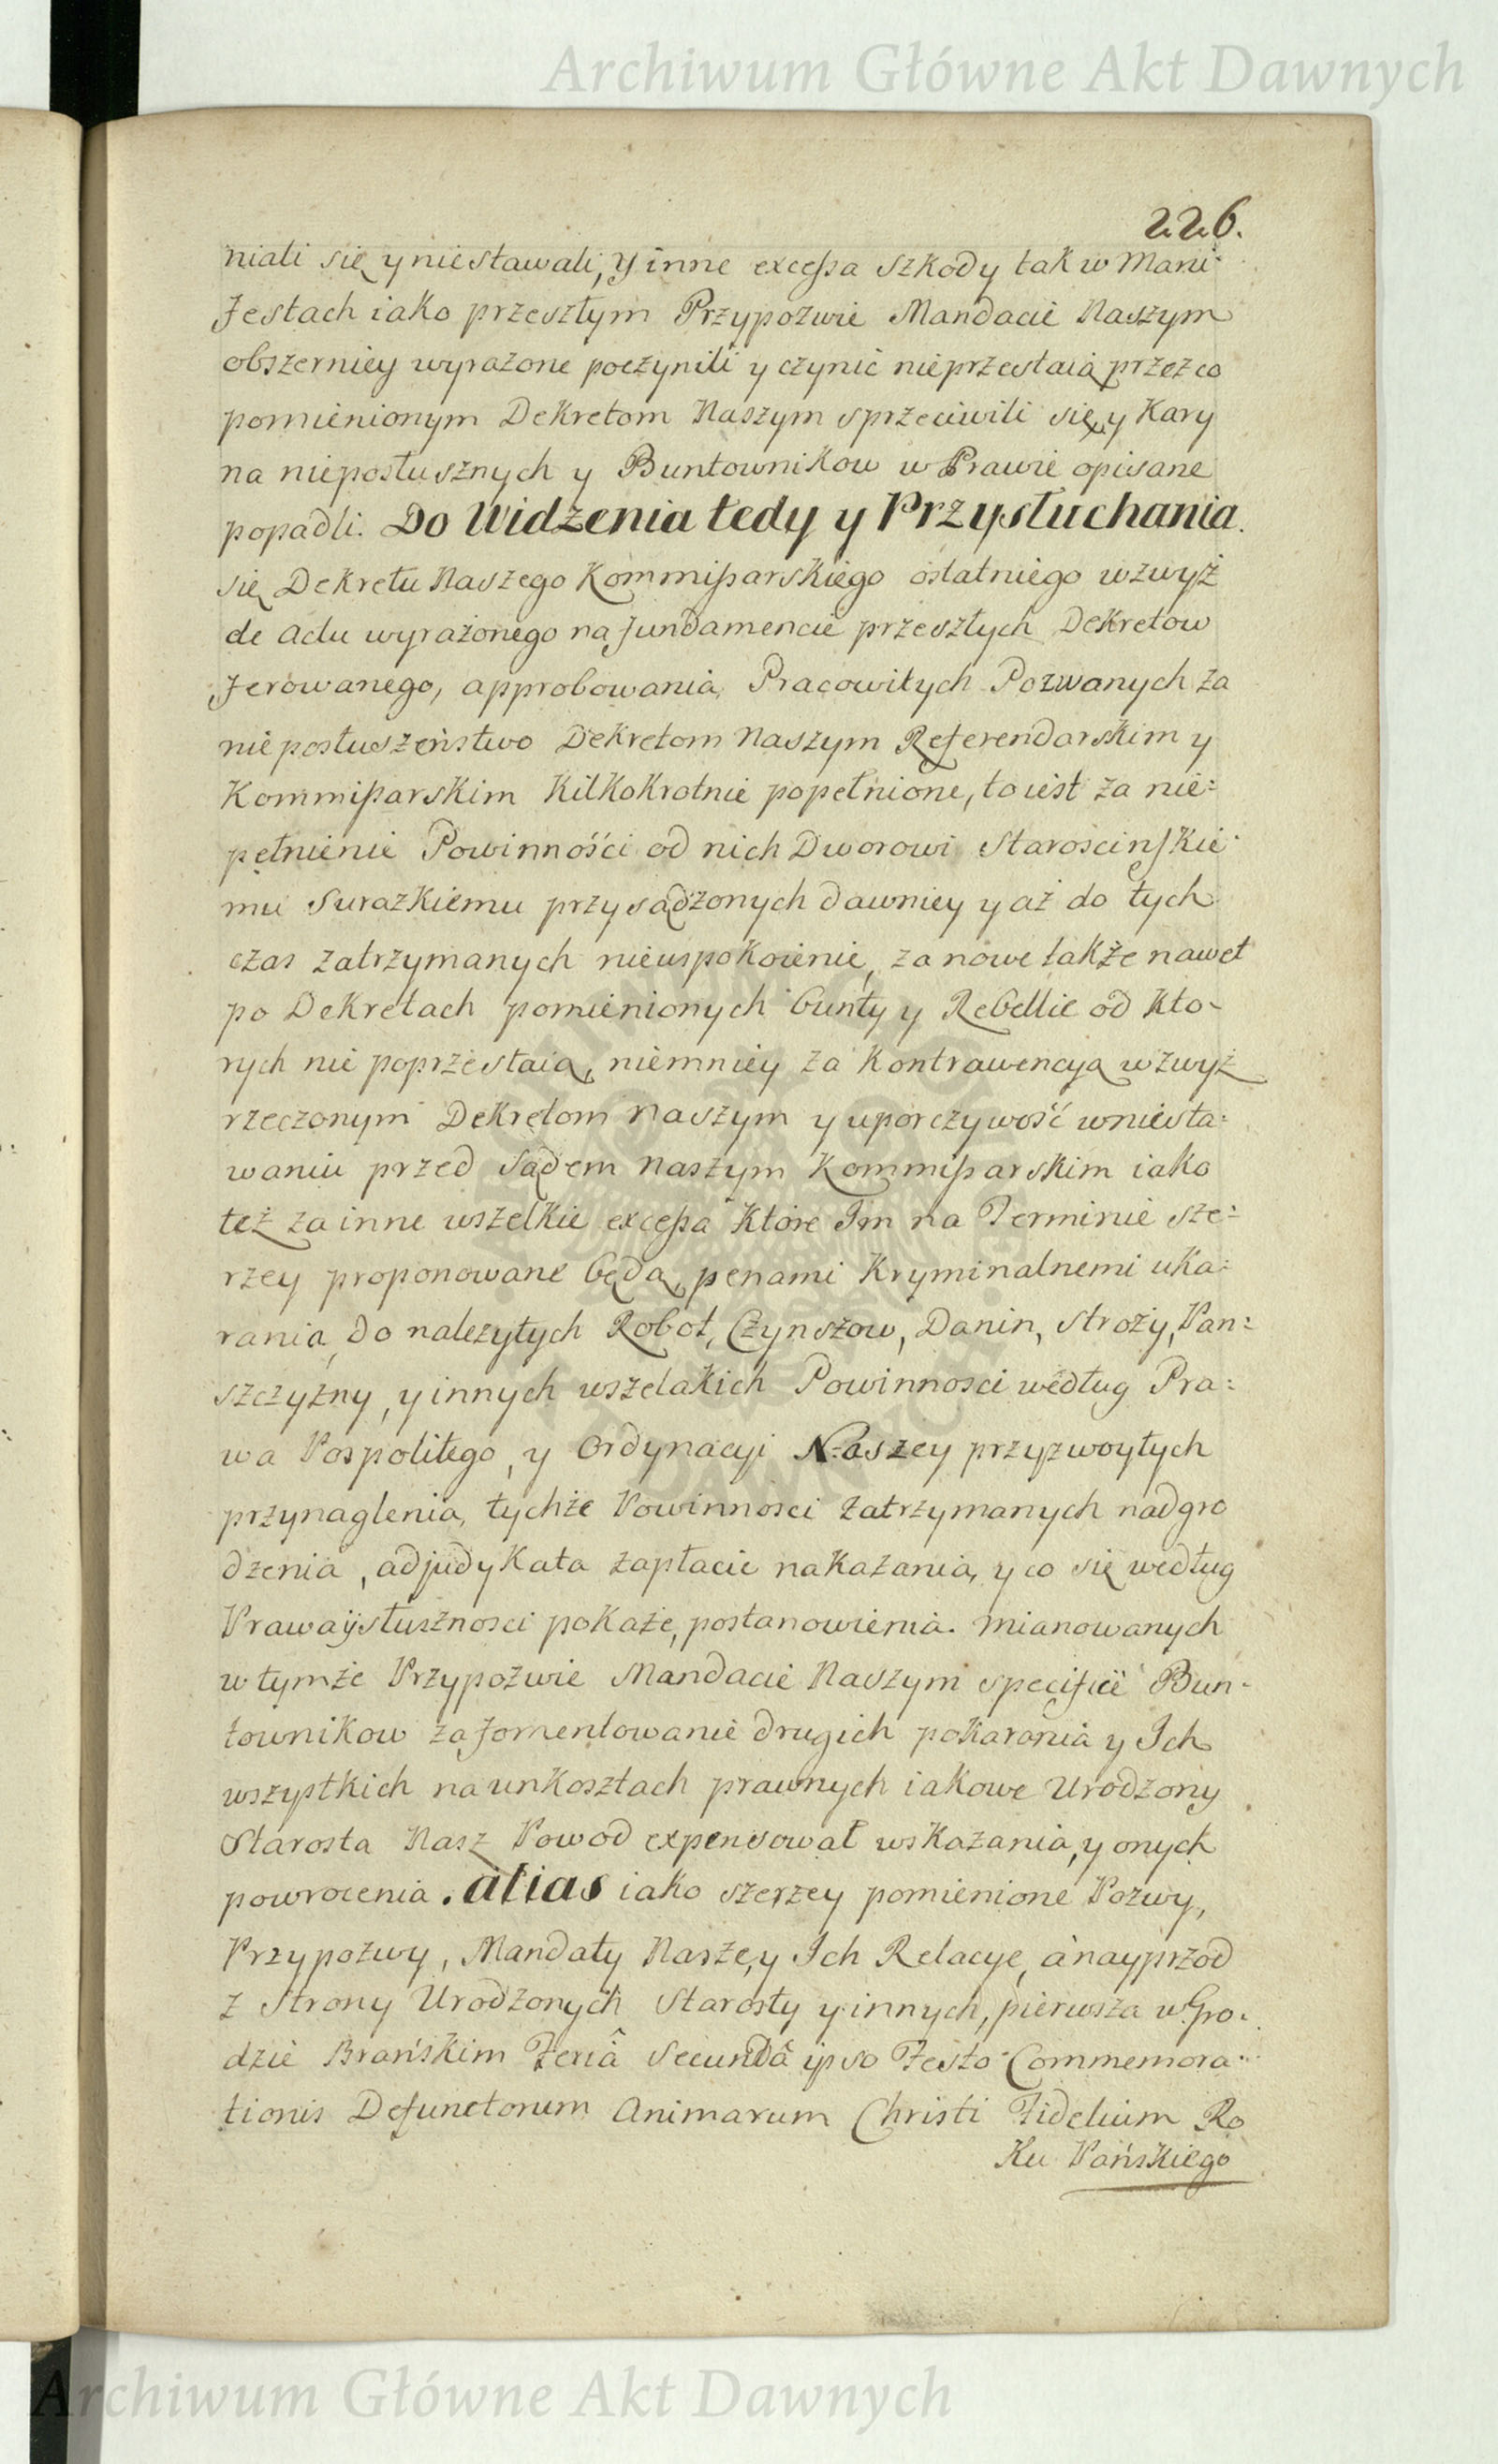 Archiwum Główne Akt Dawnych
226.
niali się y niestawali, y inne excessa szkody tak w Mani-
festach iako przeszłym Przypozwie Mandacie Naszym
obszerniey wyrażone poczynili y czynić nieprzestaią przez co
pomienionym Dekretom Naszym sprzeciwili się, y Kary
na niepostusznych y Buntownikow w Prawie opisane
popadli. Do Widzenia tedy y Przysłuchania
się Dekretu Naszego Kommissarskiego ostatniego wzwyż
de Actu wyrażonego na fundamencie przeszłych Dekretow
ferowanego, approbowania, Pracowitych Pozwanych za
nieposłuszeństwo Dekretom Naszym Referendarskim y
Kommissarskim kilkokrotnie popełnione, to iest za nie=
pełnienie Powinności od nich Dworowi Starościnskie-
mu Surazkiemu przysądzonych dawniey y aż do tych
czas zatrzymanych nieuspokoienie, za nowe także nawet
po Dekretach pomienionych bunty y Rebellie od kto-
rych nie poprzestaią, niemniey za kontrawencyą wzwyż
rzeczonym Dekretom Naszym y uporczywość w niesta=
waniu przed Sądem Naszym Kommissarskim iako
też za inne wszelkie excessa które Im na Terminie sze=
rzey proponowane będą, penami kryminalnemi uka=
rania, Do należytych Robot, Czynszow, Danin, Stroży, Pan=
szczyzny, y innych wszelakich Powinnosci według Pra=
wa Pospolitego, y Ordynacyi Naszey przyzwoytych
przynaglenia, tychże Powinnosci zatrzymanych nadgro
dzenia, adjudykata zapłacic nakazania, y co się według
Prawa y słusznosci pokaże, postanowienia. Mianowanych
w tymże Przypozwie Mandacie Naszym specifice Bun-
townikow za fomentowanie drugich pokarania y Ich
wszystkich na unkosztach prawnych iakowe Urodzony
Starosta Nasz Powod expensował wskazania, y onych
powrocenia. alias iako szerzey pomienione Pozwy,
Przypozwy, Mandaty Nasze, y Ich Relacye, a nayprzod
z Strony Urodzonych Starosty y innych, pierwsza w Gro-
dzie Brańskim Feriâ Secundâ ipso Festo Commemora-
tionis Defunctorum Animarum Christi Fidelium Ro
Ku Pańskiego
Archiwum Główne Akt Dawnych